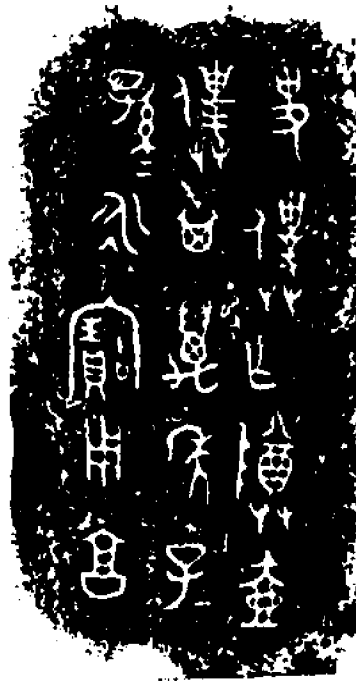 史僕乍尊壺
僕其萬年子=
孫=永寶用亯